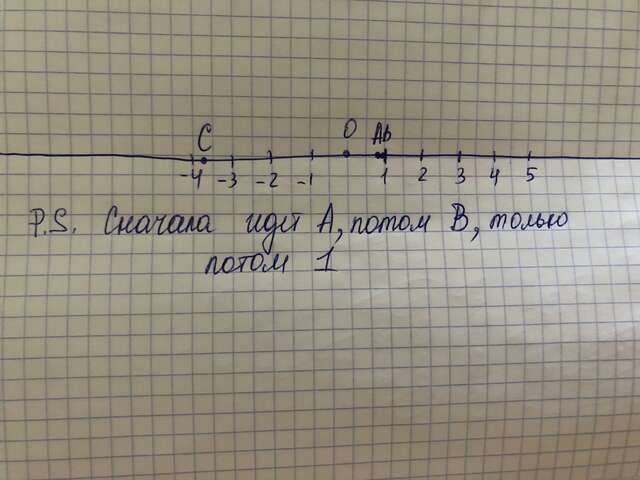 C O Ab
-4 -3 -2 -1 1 2 3 4 5
P.S. Сначала идёт A, потом B, только
потом 1